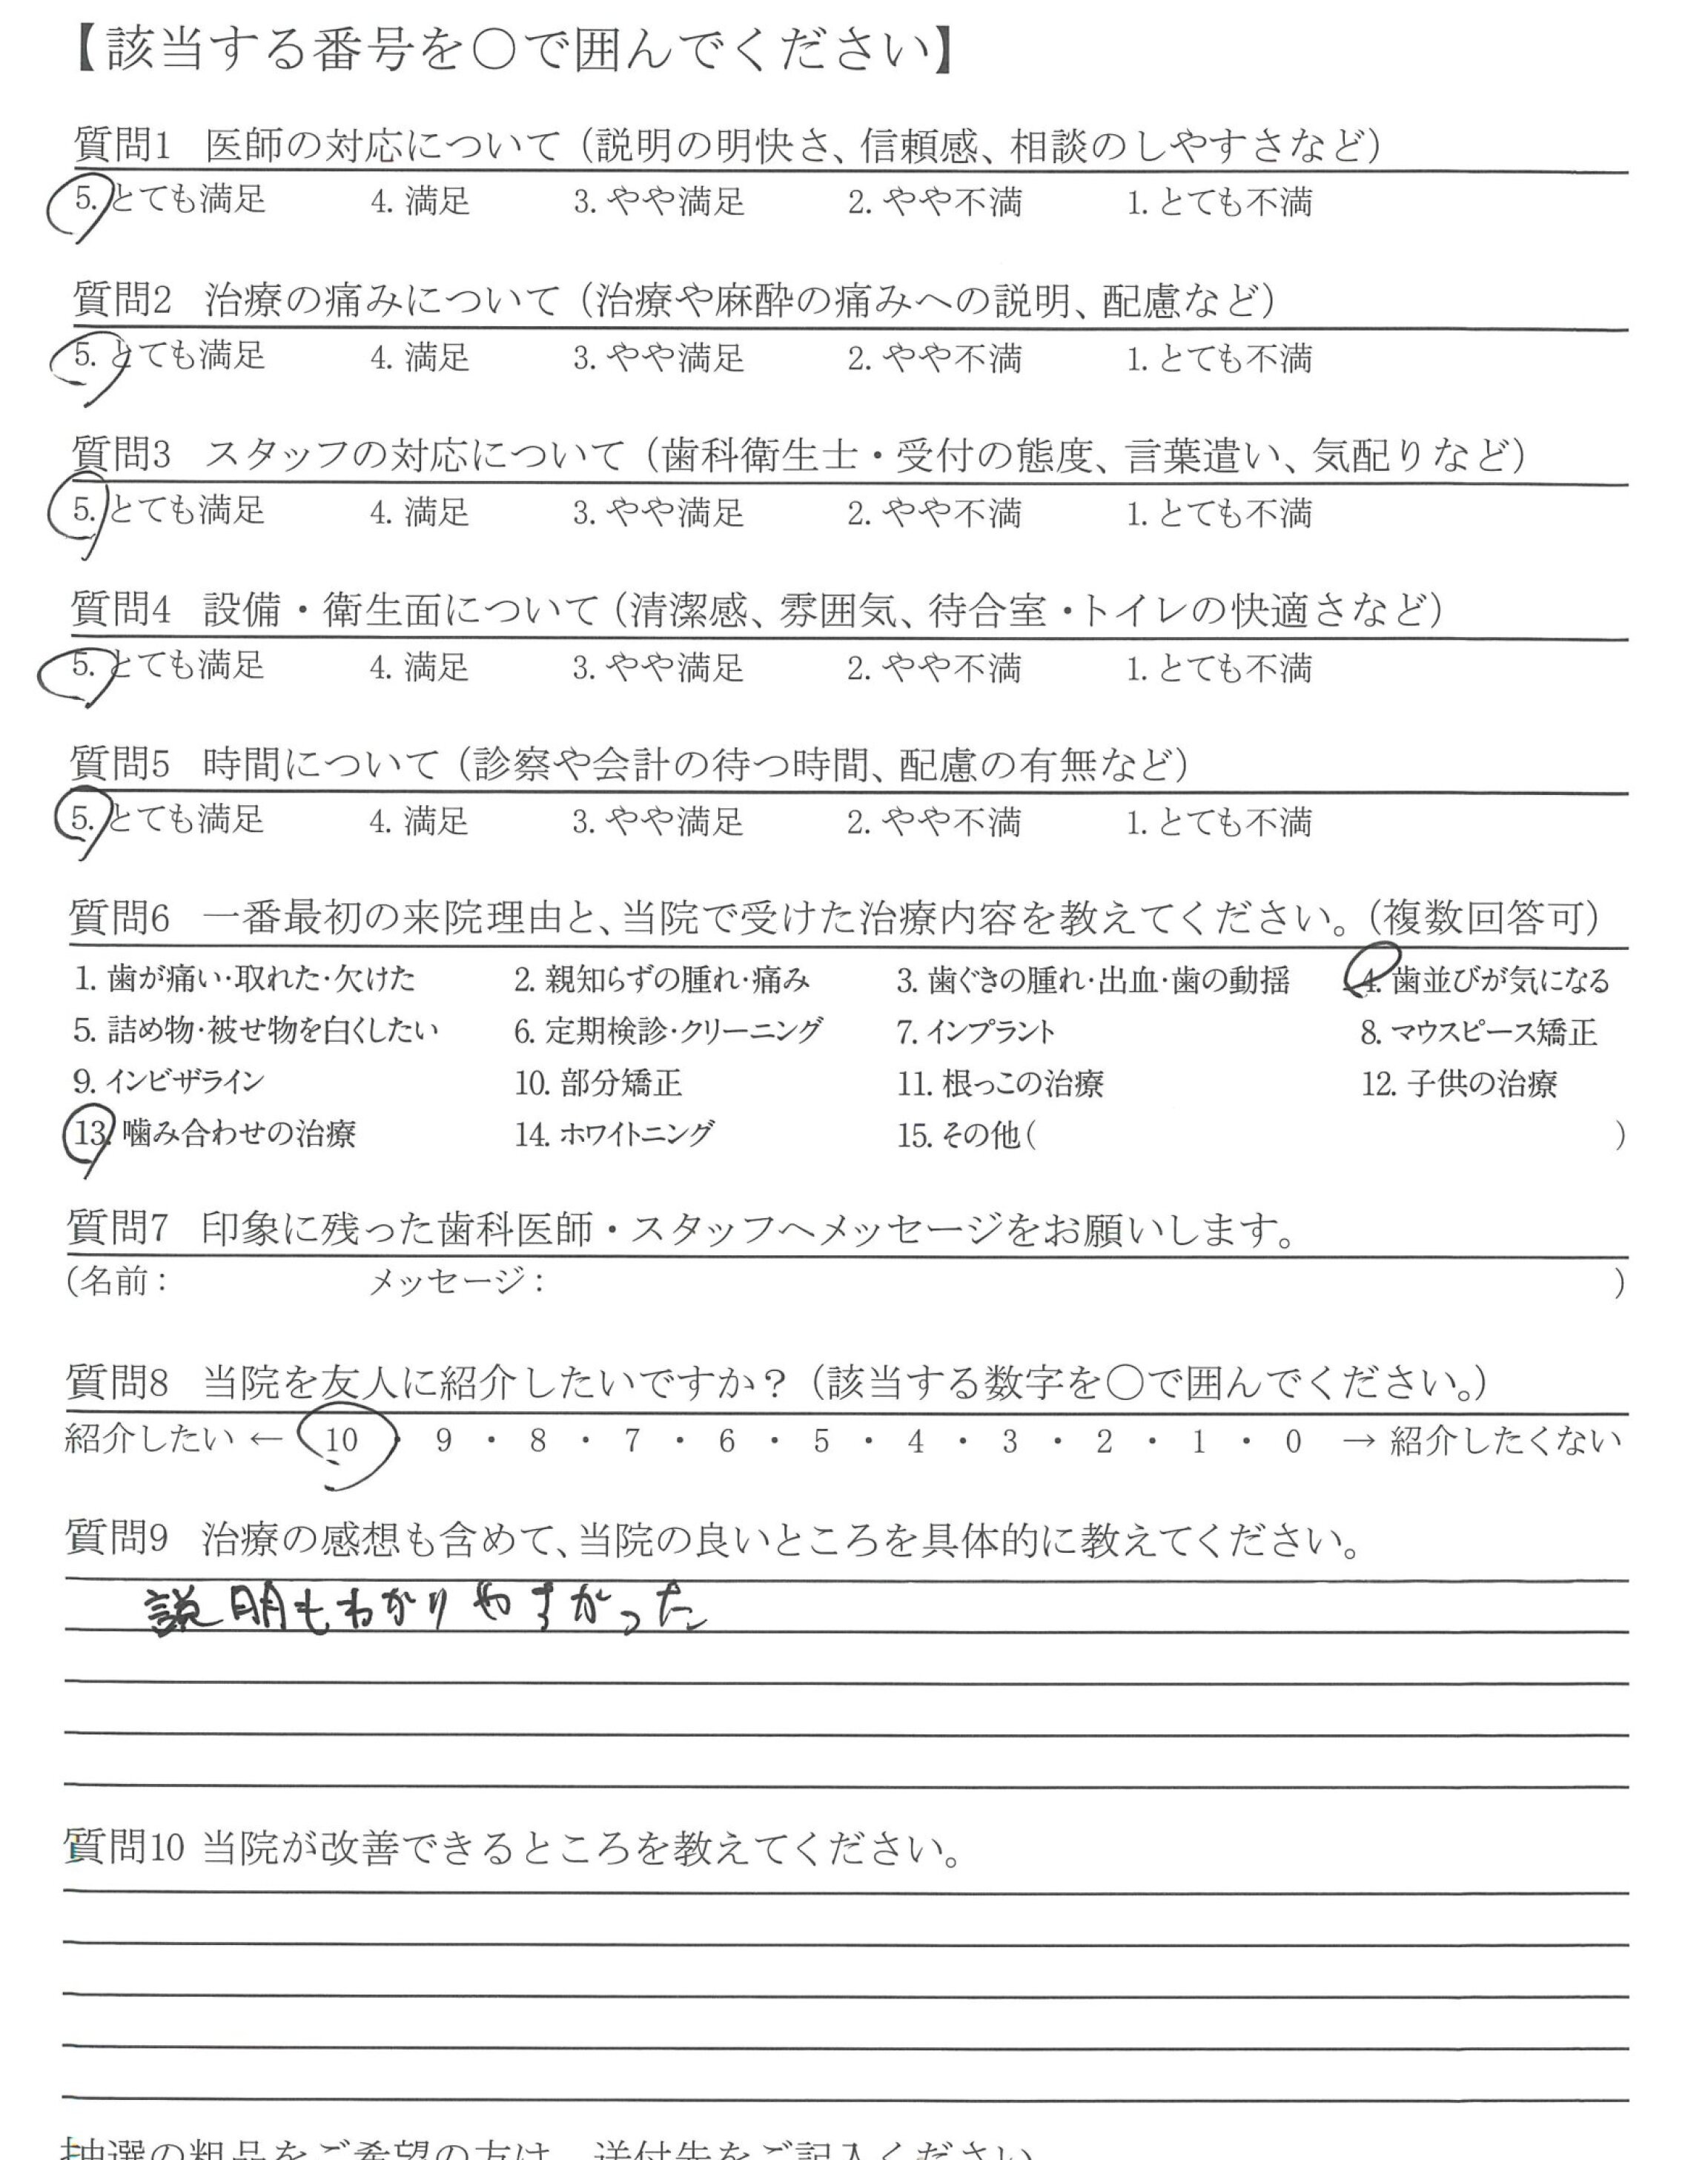 【該当する番号を○で囲んでください】
質問1 医師の対応について（説明の明快さ、信頼感、相談のしやすさなど）
5. とても満足 4. 満足 3. やや満足 2. やや不満 1. とても不満
質問2 治療の痛みについて（治療や麻酔の痛みへの説明、配慮など）
5. とても満足 4. 満足 3. やや満足 2. やや不満 1. とても不満
質問3 スタッフの対応について（歯科衛生士・受付の態度、言葉遣い、気配りなど）
5. とても満足 4. 満足 3. やや満足 2. やや不満 1. とても不満
質問4 設備・衛生面について（清潔感、雰囲気、待合室・トイレの快適さなど）
5. とても満足 4. 満足 3. やや満足 2. やや不満 1. とても不満
質問5 時間について（診察や会計の待つ時間、配慮の有無など）
5. とても満足 4. 満足 3. やや満足 2. やや不満 1. とても不満
質問6 一番最初の来院理由と、当院で受けた治療内容を教えてください。（複数回答可）
1. 歯が痛い・取れた・欠けた 2. 親知らずの腫れ・痛み 3. 歯ぐきの腫れ・出血・歯の動揺 4. 歯並びが気になる
5. 詰め物・被せ物を白くしたい 6. 定期検診・クリーニング 7. インプラント 8. マウスピース矯正
9. インビザライン 10. 部分矯正 11. 根っこの治療 12. 子供の治療
13. 噛み合わせの治療 14. ホワイトニング 15. その他( )
質問7 印象に残った歯科医師・スタッフへメッセージをお願いします。
（名前： メッセージ： ）
質問8 当院を友人に紹介したいですか？（該当する数字を○で囲んでください。）
紹介したい ← 10 ・ 9 ・ 8 ・ 7 ・ 6 ・ 5 ・ 4 ・ 3 ・ 2 ・ 1 ・ 0 → 紹介したくない
質問9 治療の感想も含めて、当院の良いところを具体的に教えてください。
説明もわかりやすかった
質問10 当院が改善できるところを教えてください。
抽選の粗品をご希望の方は、送付先をご記入ください